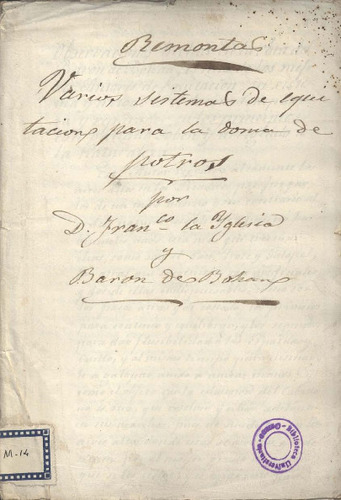 Remontas
Varios sistemas de equi
tacion para la doma de
potros
por
D. Fran.co la Yglesia
y
Baron de Bohan
M-14
Biblioteca Universitaria